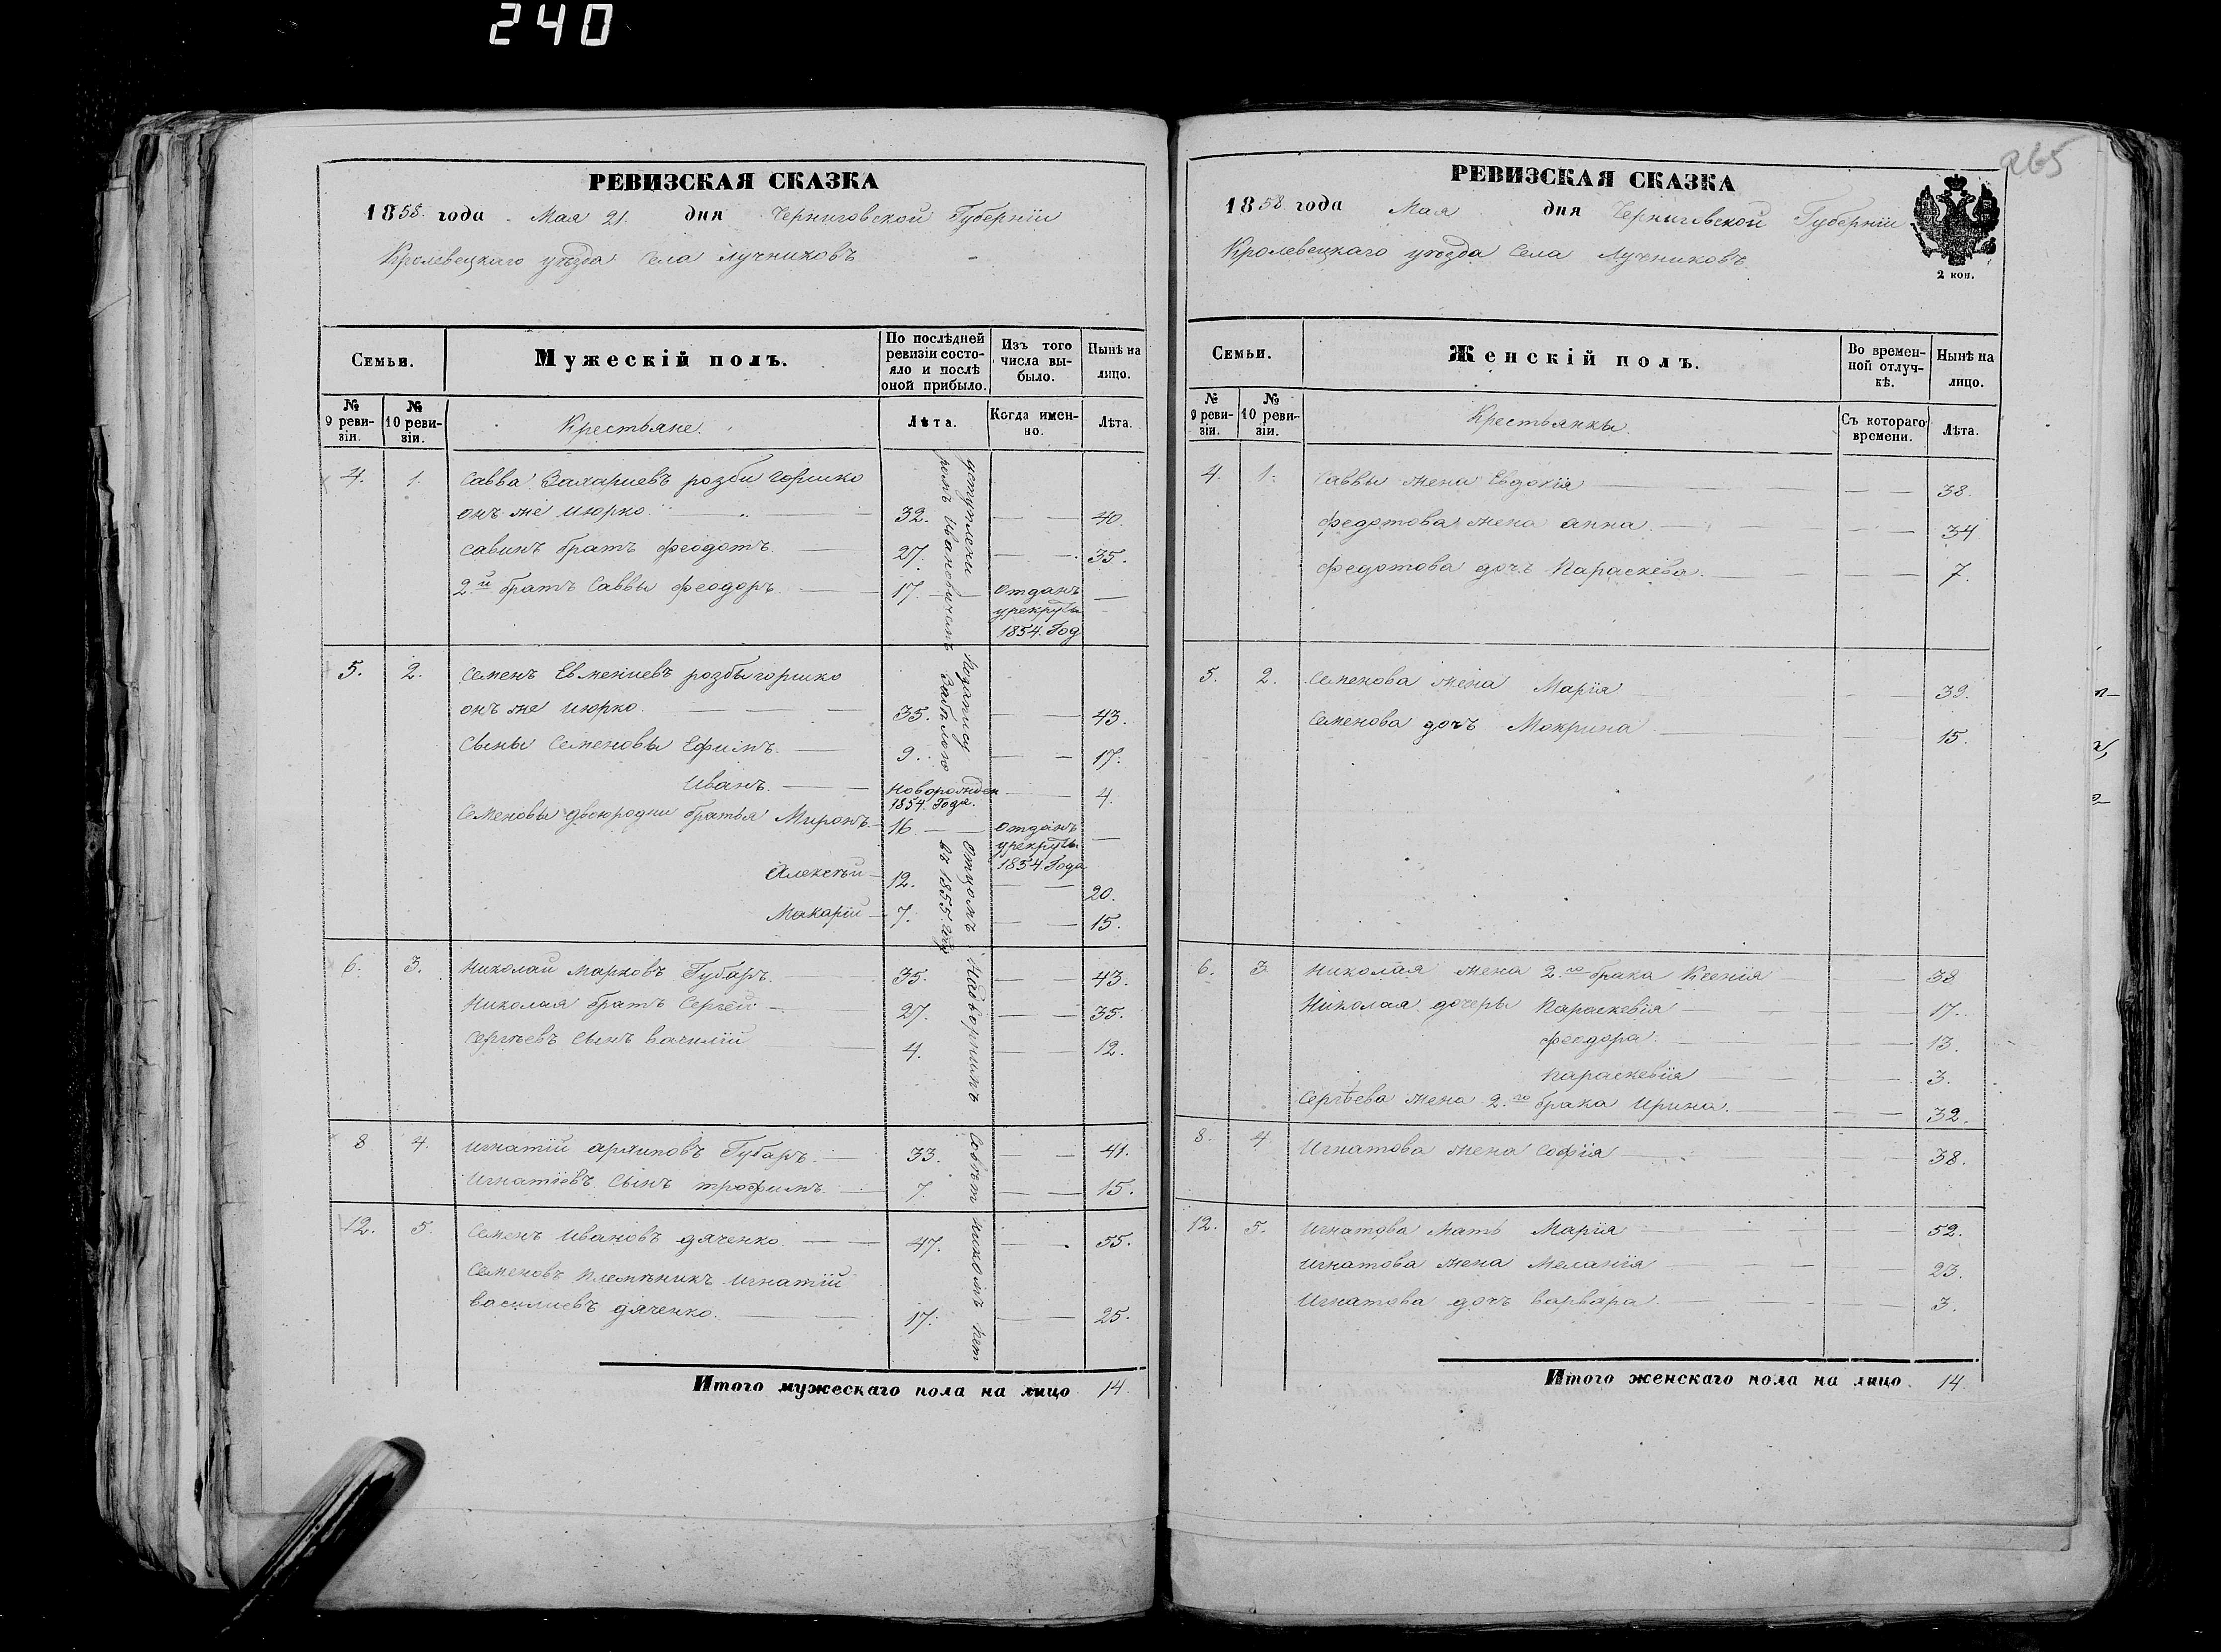 240
РЕВИЗСКАЯ СКАЗКА
1858. года Мая 21. дня Черниговской Губернiи
Кролевецкаго уѣзда Села Лучниковъ.
Семьи.
Мужескiй полъ.
По послѣдней ревизiи состояло и послѣ оной прибыло.
Изъ того числа выбыло.
Нынѣ на лицо.
№ 9 ревизiи.
№ 10 ревизiи.
Крестьяне.
Лѣта.
Когда именно.
Лѣта.
4. 1. Савва Захариевъ розби горшко
онъ же Июрко. 32. — — 40.
Савинъ братъ Феодотъ. — 27. — — 35.
2й братъ Саввы Феодоръ. — 17. — Отданъ —
урекруты
1854. Год
5. 2. Семенъ Евмениевъ розбыгоршко
онъ же Июрко. — — — 35. — — 43.
Сыны Семеновы Ефимъ. — 9. — — 17.
Иванъ. — — Новорожден — 4.
1854. Года.
Семеновы двоюродни братья Миронъ. — 16. — — Отданъ —
урекруты
1854. Года
Алексѣй — 12. — — 20.
Макарiй — 7. — — 15.
6. 3. Николай Марковъ Губарь. 35. — — 43.
Николая братъ Сергѣй — 27. — — 35.
Сергѣевъ Сынъ Василiй 4. — — 12.
8 4. Игнатiй Архиповъ Губарь. — 33. — — 41.
Игнатiевъ Сынъ Трофимъ. — 7. — — 15.
12. 5. Семенъ Ивановъ Дяченко. — — 47. — . 55.
Семеновъ племѣникъ Игнатiй
Василиевъ Дяченко. — — 17. — — 25.
уступлени Позапису Отцомъ Надворнимъ Совѣтникомъ Пет
ромъ Ивановичемъ Забѣлою въ 1855. году
Итого мужескаго пола на лицо 14.
265
РЕВИЗСКАЯ СКАЗКА
1858 года Мая дня Черниговской Губернiи
Кролевецкаго уѣзда Села Лучниковъ
2 коп.
Семьи.
Женскiй полъ.
Во временной отлучкѣ.
Нынѣ на лицо.
№ 9 ревизiи.
№ 10 ревизiи.
Крестьянкы.
Съ котораго времени.
Лѣта.
4. 1. Саввы жена Евдокiя — — — 38.
Федотова жена Анна. — — — 34
Федотова дочъ Параскева. — — — 7.
5. 2. Семенова жена Марiя — — 39.
Семенова дочъ Мокрина — — 15.
6. 3 Николая жена 2.го брака Ксенiя — 38
Николая дочеры Параскевiя — — 17.
Феодора. — — 13.
Параскевiя — — 3.
Сергѣева жена 2.го брака Ирина. — — 32.
8. 4. Игнатова жена Софiя — — 38.
12. 5. Игнатова Мать Марiя — — 52.
Игнатова жена Меланiя — — 23.
Игнатова дочъ Варвара. — — 3.
Итого женскаго пола на лицо. 14.